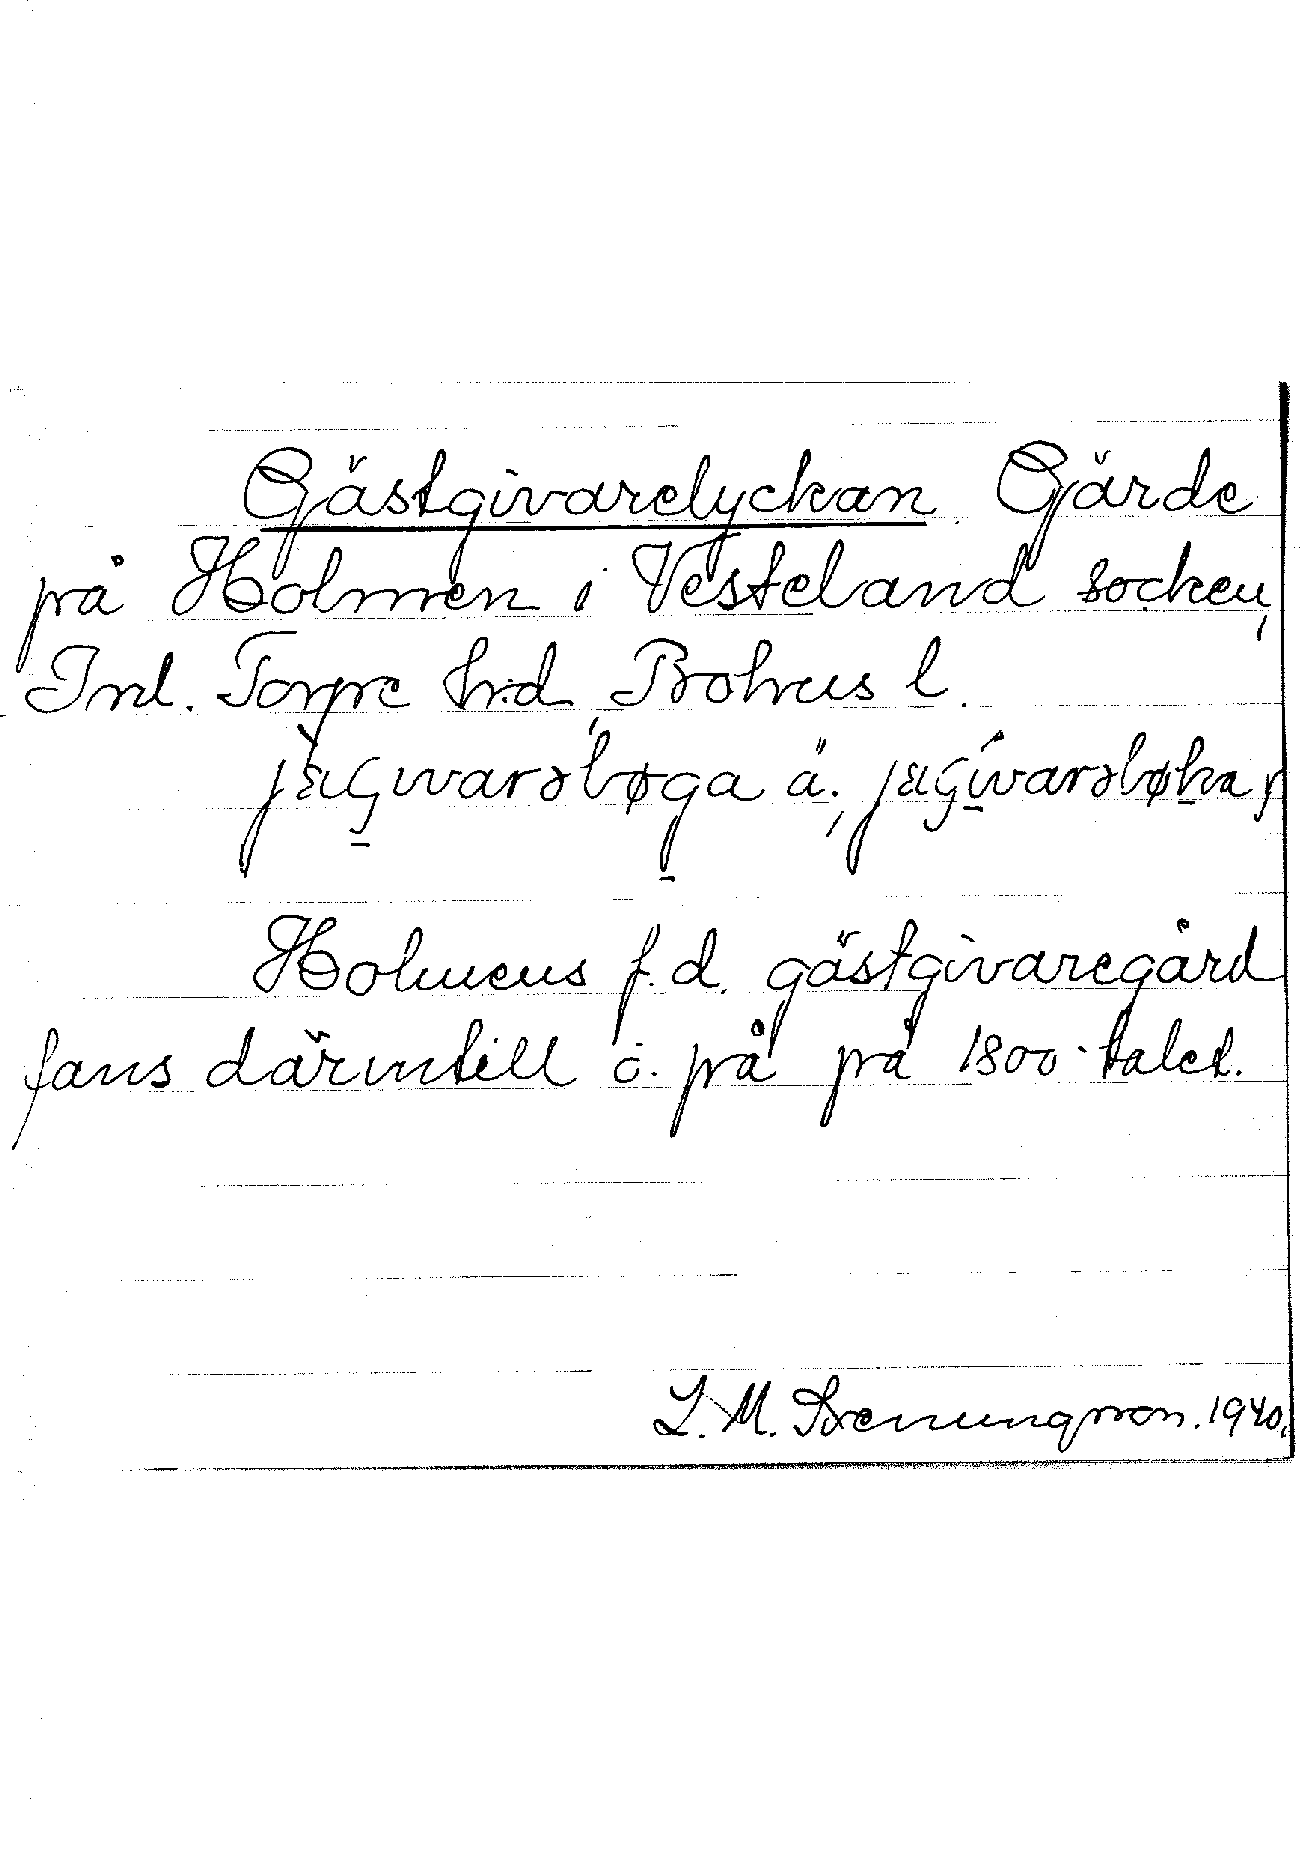 Gästgivarelyckan. Gärde
på Holmen i Vesteland socken,
Inl. Torpe hrd, Bohus l.
Holmens f.d. gästgivaregård
fans därintill ö. på på 1800-talet.
L. M. Svenungsson. 1940.